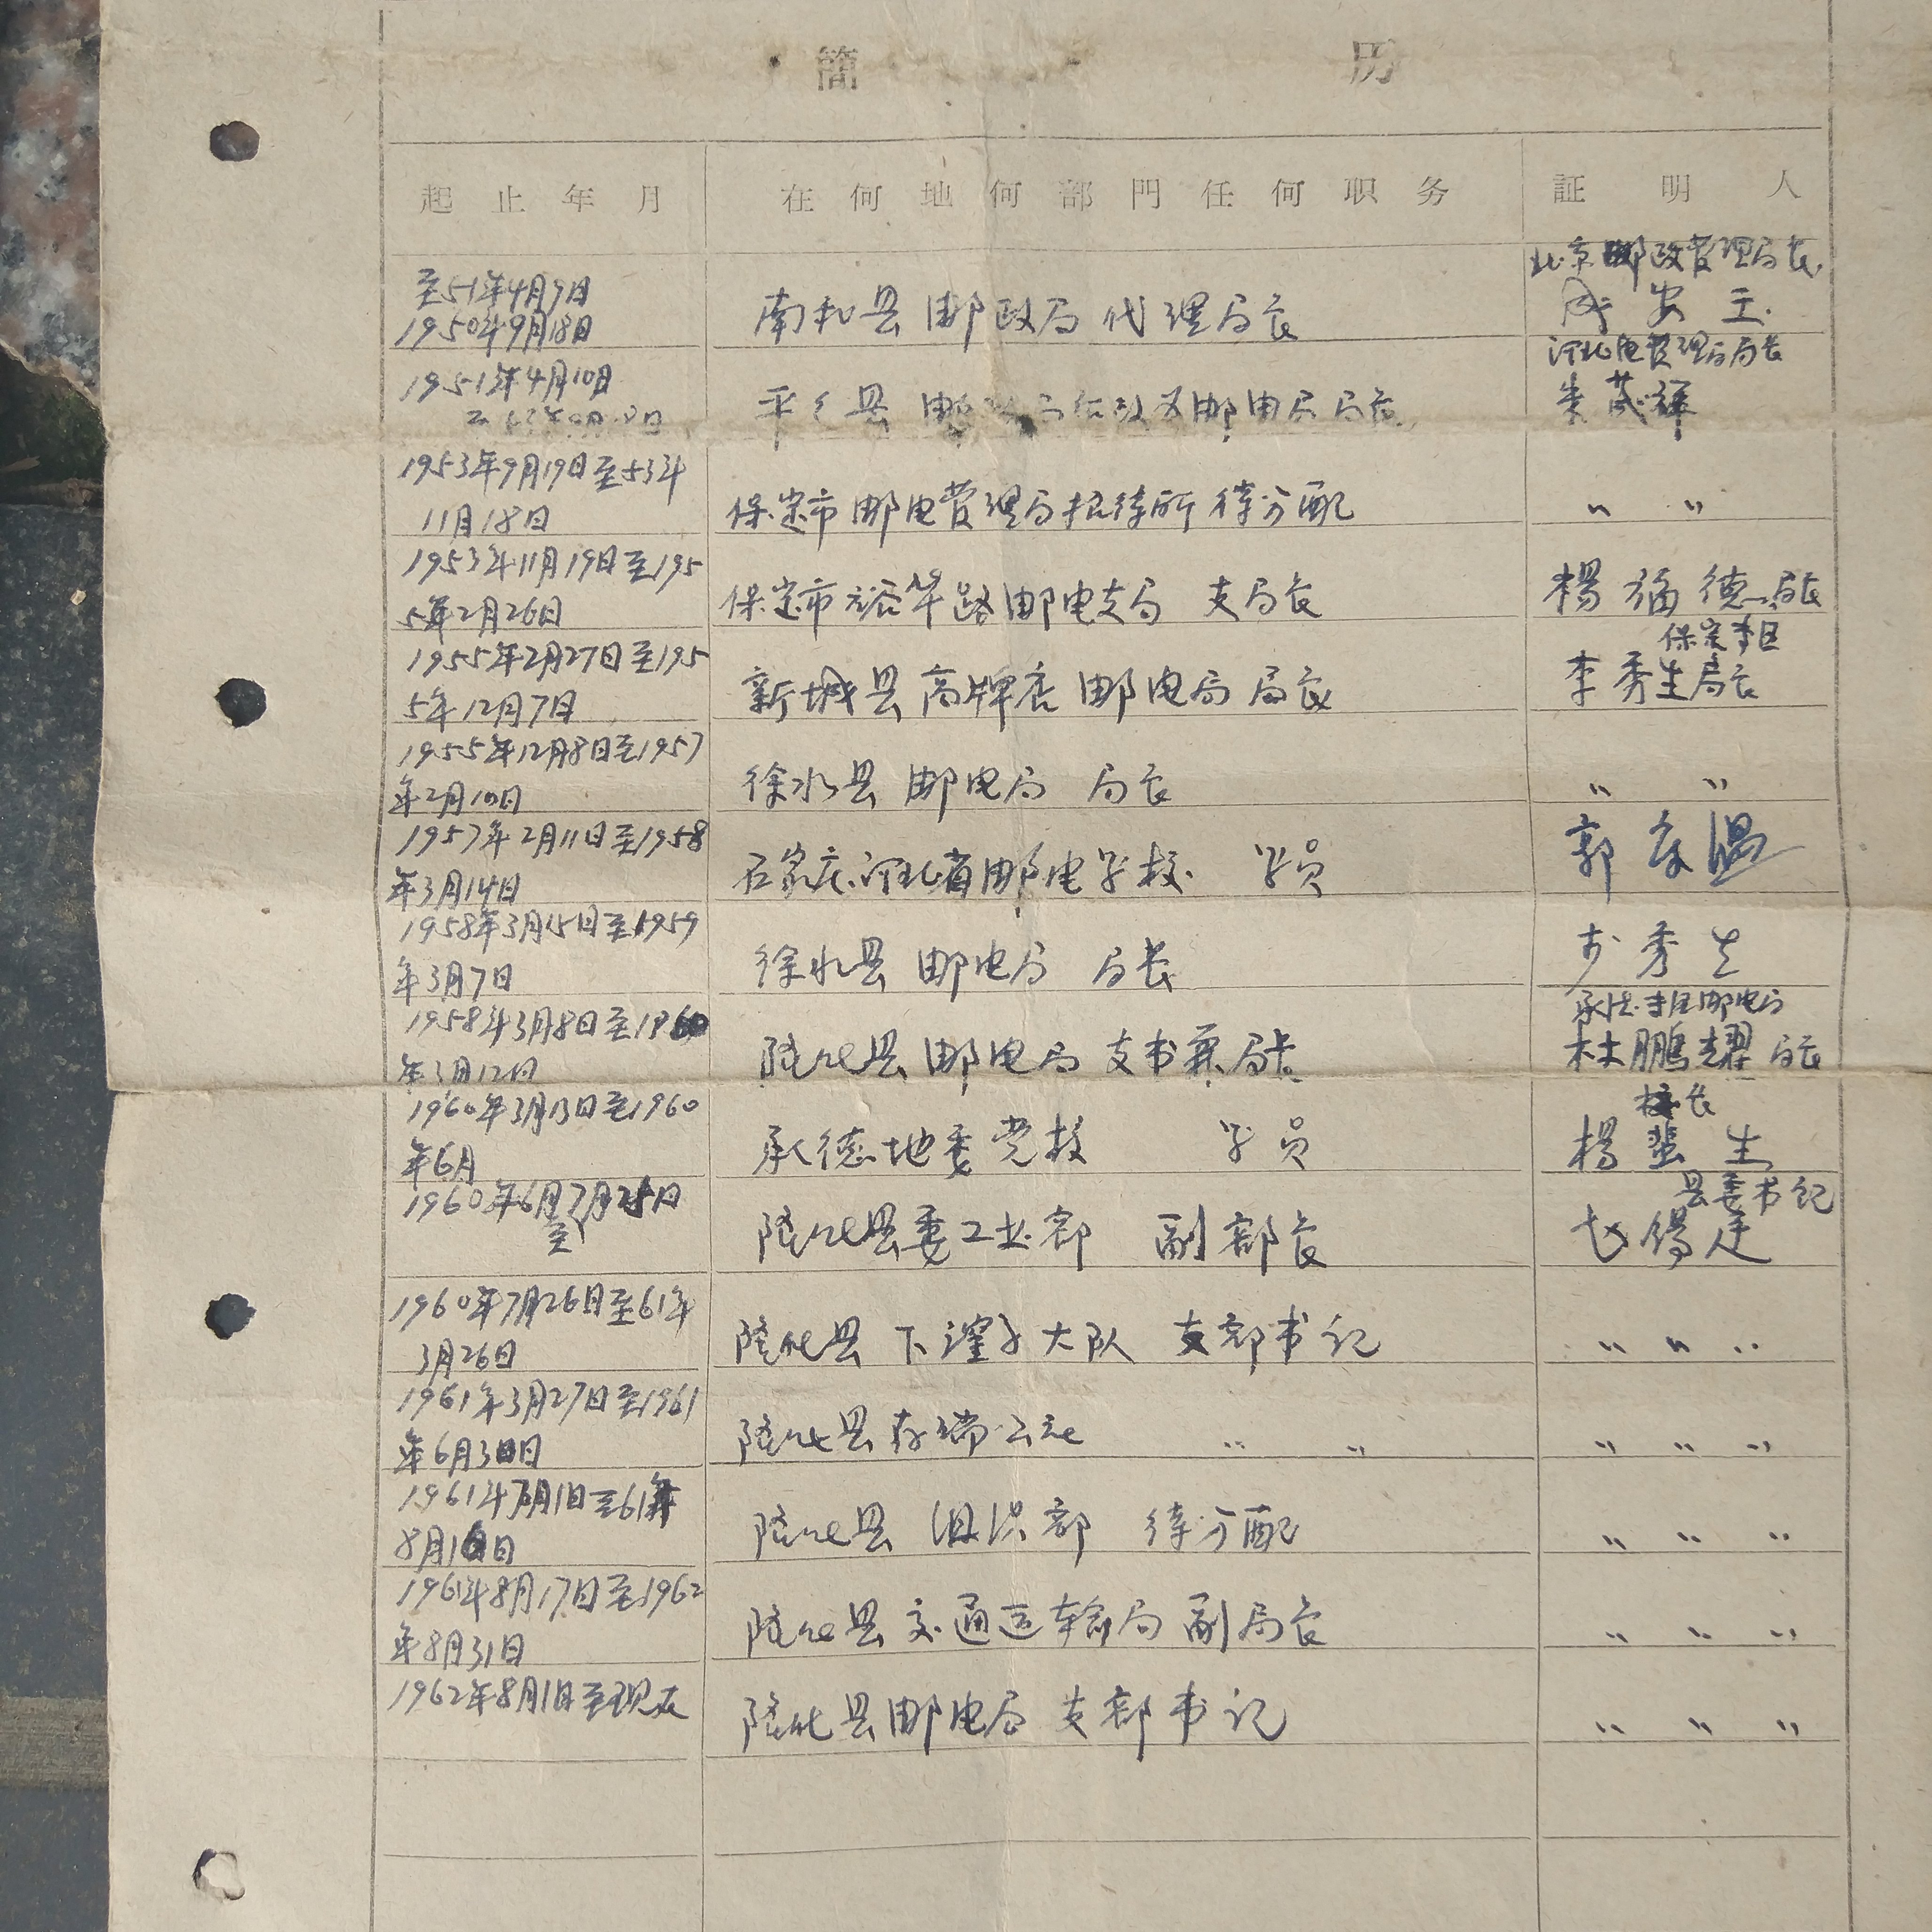 簡 历
起止年月 在何地何部門任何职务 証明人
北京邮政管理局长
至51年4月9日
1950年9月18日 南和县邮政局代理局长 安玉
河北电管理局局长
1951年4月10日 平乡县邮 局 邮电局局长 朱茂祥
1953年9月19日至53年
11月18日 保定市邮电管理局招待所待分配 〃 〃
1953年11月19日至195
5年2月26日 保定市裕华路邮电支局 支局长 楊福德局长
保定专区
1955年2月27日至195
5年12月7日 新城县高牌店邮电局局长 李秀生局长
1955年12月8日至1957
年2月10日 徐水县邮电局 局长 〃 〃
1957年2月11日至1958
年3月14日 石家庄河北省邮电学校 学员 郭 温
1958年3月15日至1959
年3月7日 徐水县邮电局 局长 秀生
承德专区邮电局
1958年3月8日至1960
年3月12日 隆化县邮电局支书兼局长 杜鵬耀局长
校长
1960年3月13日至1960
年6月 承德地委党校 学员 楊 生
县委书纪
1960年6月7月25日
至 隆化县委工业部 副部长
1960年7月26日至61年
3月26日 隆化县下洼子大队 支部书记 〃 〃 〃
1961年3月27日至1961
年6月30日 隆化县存瑞公社 〃 〃 〃 〃 〃
1961年7月1日至61年
8月16日 隆化县组织部 待分配 〃 〃 〃
1961年8月17日至1962
年8月31日 隆化县交通运输局副局长 〃 〃 〃
1962年8月1日至现在 隆化县邮电局 支部书记 〃 〃 〃